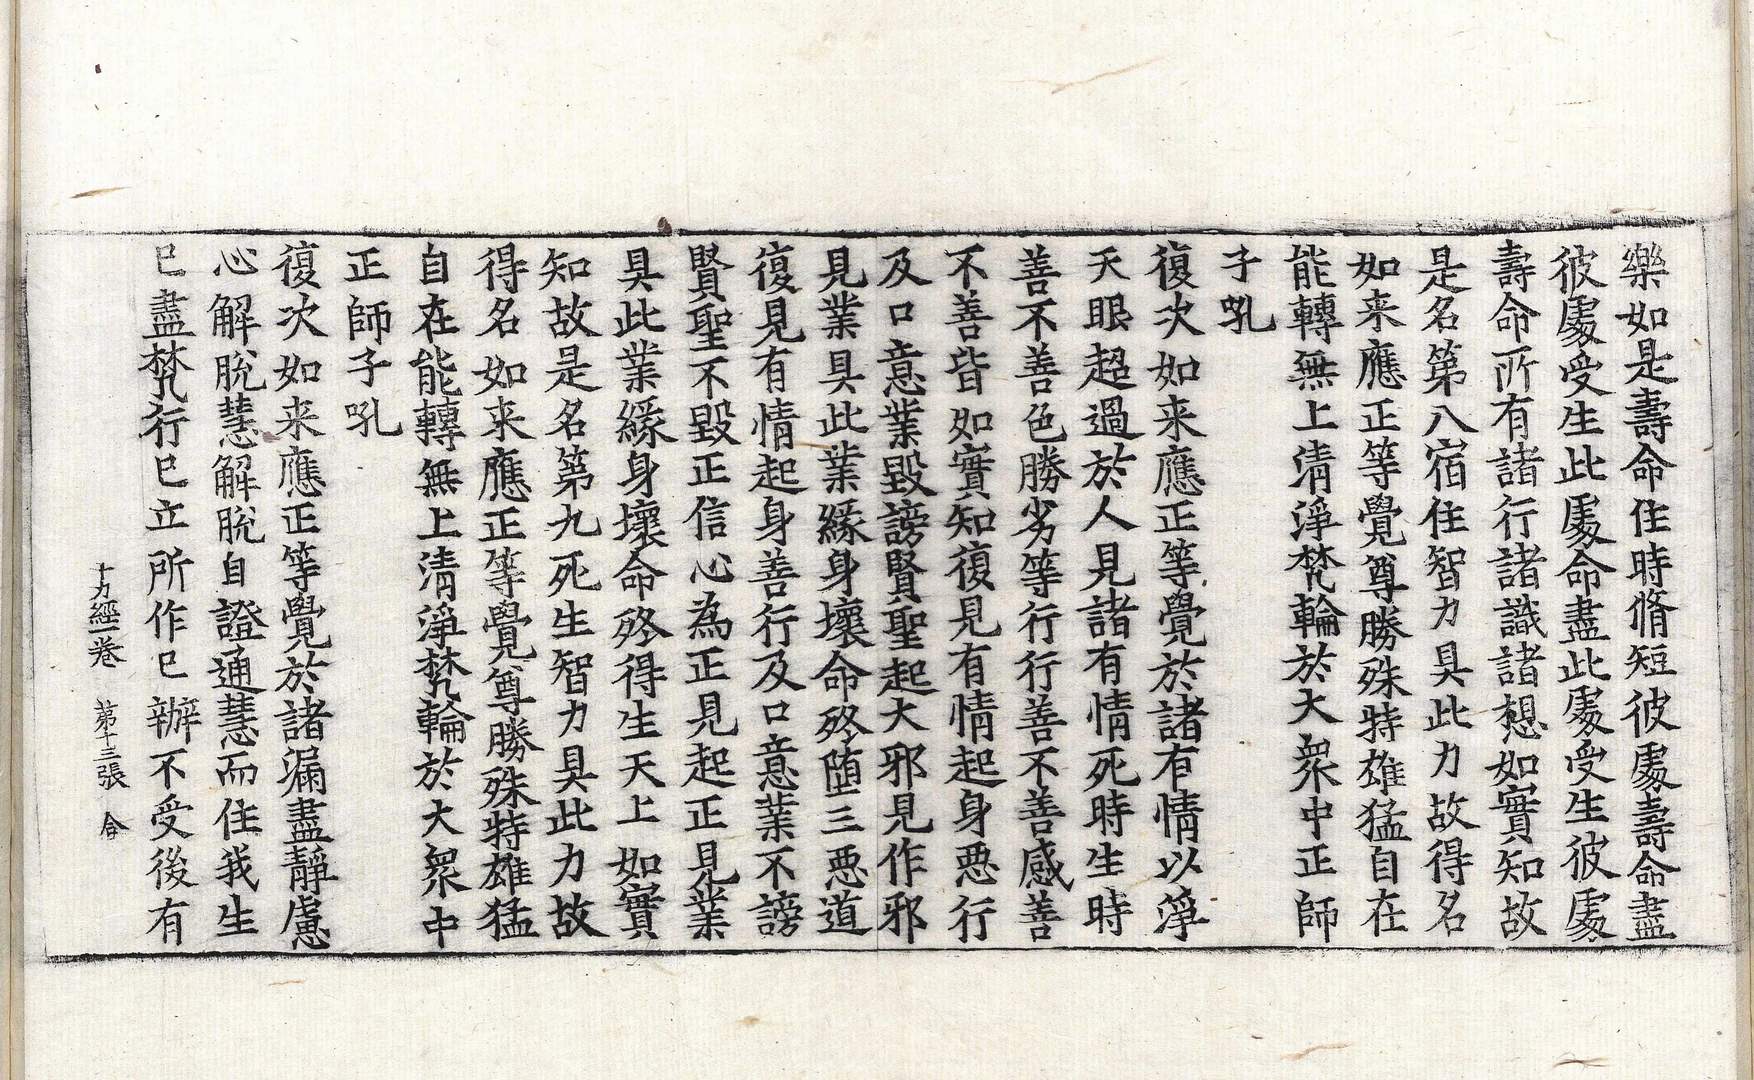 樂如是壽命住時脩短彼處壽命盡
彼處受生此處命盡此處受生彼處
壽命所有諸行諸識諸想如實知故
是名第八宿住智力具此力故得名
如来應正等覺尊勝殊特雄猛自在
能轉無上清淨梵輪於大衆中正師
子吼
復次如来應正等覺於諸有情以淨
天眼超過於人見諸有情死時生時
善不善色勝劣等行行善不善感善
不善皆如實知復見有情起身惡行
及口意業毀謗賢聖起大邪見作邪
見業具此業緣身壞命終墮三惡道
復見有情起身善行及口意業不謗
賢聖不毀正信心為正見起正見業
具此業緣身壞命終得生天上如實
知故是名第九死生智力具此力故
得名如来應正等覺尊勝殊特雄猛
自在能轉無上清淨梵輪於大衆中
正師子吼
復次如来應正等覺於諸漏盡靜慮
心解脫慧解脫自證通慧而住我生
已盡梵行已立所作已辦不受後有
十力經一卷 第十三張 合